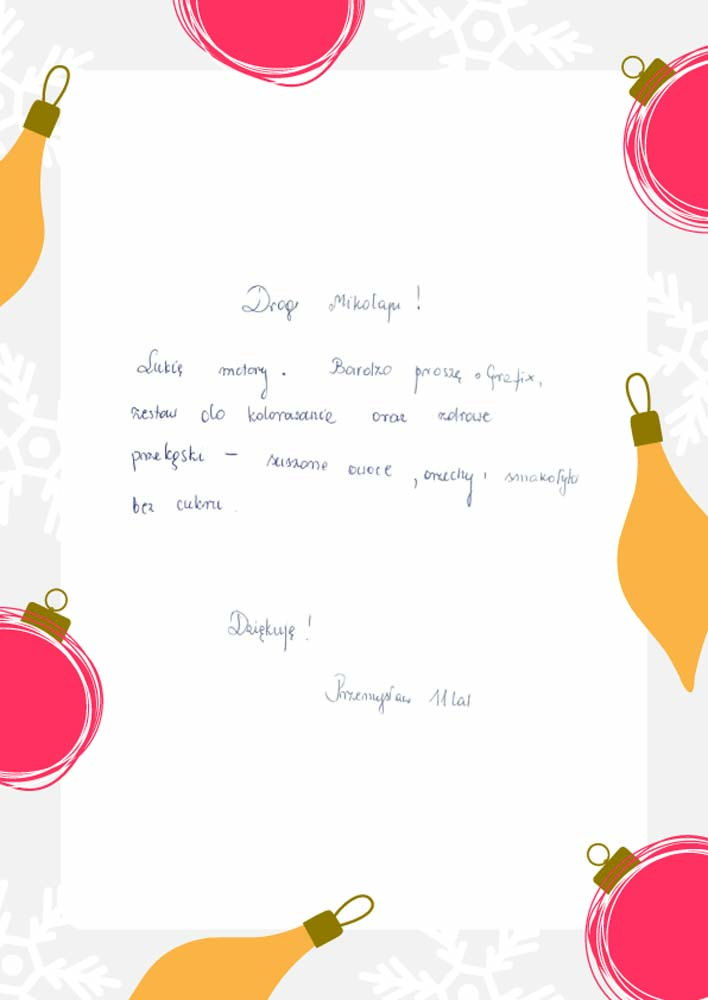 Drogi Mikołaju!
Lubię motory. Bardzo proszę o Grafix,
zestaw do kolorowanie oraz zdrowe
przekąski – suszone owoce, orzechy i smakołyki
bez cukru.
Dziękuję!
Przemysław 11 lat